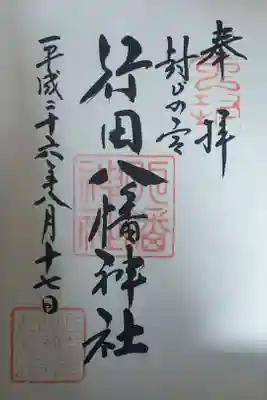 奉拝
封じの宮
行田八幡神社
平成二十六年八月十七日